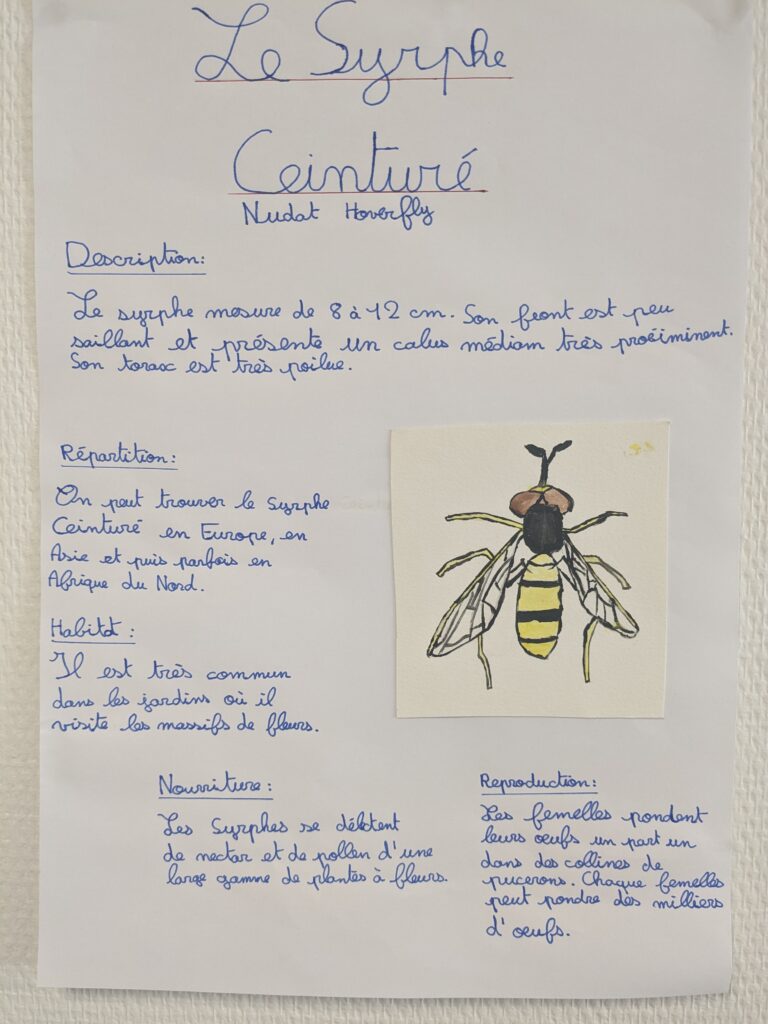 Le Syrphe
Ceinturé
Nudat Hoverfly
Description:
Le syrphe mesure de 8 à 12 cm. Son front est peu
saillant et présente un calus médiam très proëiminent.
Son torax est très poilue.
Répartition:
On peut trouver le Syrphe
Ceinturé en Europe, en
Asie et puis parfois en
Afrique du Nord.
Habitat:
Il est très commun
dans les jardins où il
visite les massifs de fleurs.
Nourriture:
Les Syrphes se délectent
de nectar et de pollen d'une
large gamme de plantes à fleurs.
Reproduction:
Les femelles pondent
leurs œufs un part un
dans des collines de
pucerons. Chaque femelles
peut pondre des milliers
d'œufs.